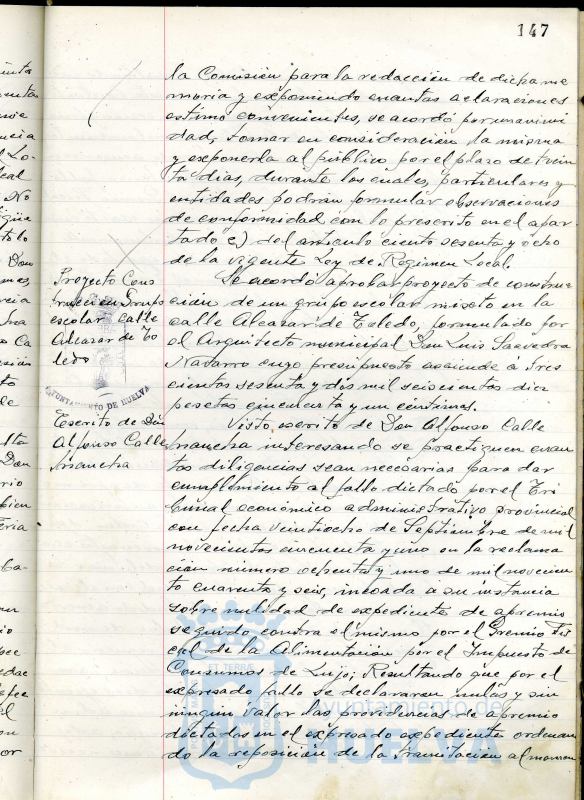 147
la Comisión para la redacción de dicha me
moria y exponiendo cuantas aclaraciones
estimo convenientes, se acordó por unanimi
dad, tomar en consideración la misma
y exponerla al público por el plazo de trein
ta dias, durante los cuales, particulares y
entidades podran formular observaciones
de conformidad con lo prescrito en el apar
tado c) del articulo ciento sesenta y ocho
de la vigente Ley de Regimen Local.
Proyecto Cons
trucción Grupo
escolar calle
Alcazar de To
ledo
Se acordó aprobar proyecto de construc
ción de un grupo escolar mixto en la
calle Alcazar de Toledo, formulado por
el Arquitecto municipal Don Luis Saavedra
Navarro cuyo presupuesto asciende á tres
cientas sesenta y dós mil seiscientas diez
pesetas cincuenta y un centimos.
AYUNTAMIENTO DE HUELVA
Escrito de Don
Alfonso Calle
Mancha
Visto escrito de Don Alfonso Calle
Mancha interesando se practiquen cuan
tas diligencias sean necesarias para dar
cumplimiento al fallo dictado por el Tri
bunal económico administrativo provincial
con fecha veintiocho de Septiembre de mil
novecientos cincuenta y uno en la reclama
ción número ochenta y uno de mil novecien
to cuarenta y seis, incoada a su instancia
sobre nulidad de expediente de apremio
seguido contra el mismo por el Gremio Fis
cal de la Alimentación por el Impuesto de
Consumos de Lujo; Resultando que por el
expresado fallo se declararan nulas y sin
ningun valor las providencias de apremio
dictadas en el expresado expediente ordenan
do la reposición de la tramitación al momen
ET TERRÆ
Ayuntamiento de
HUELVA